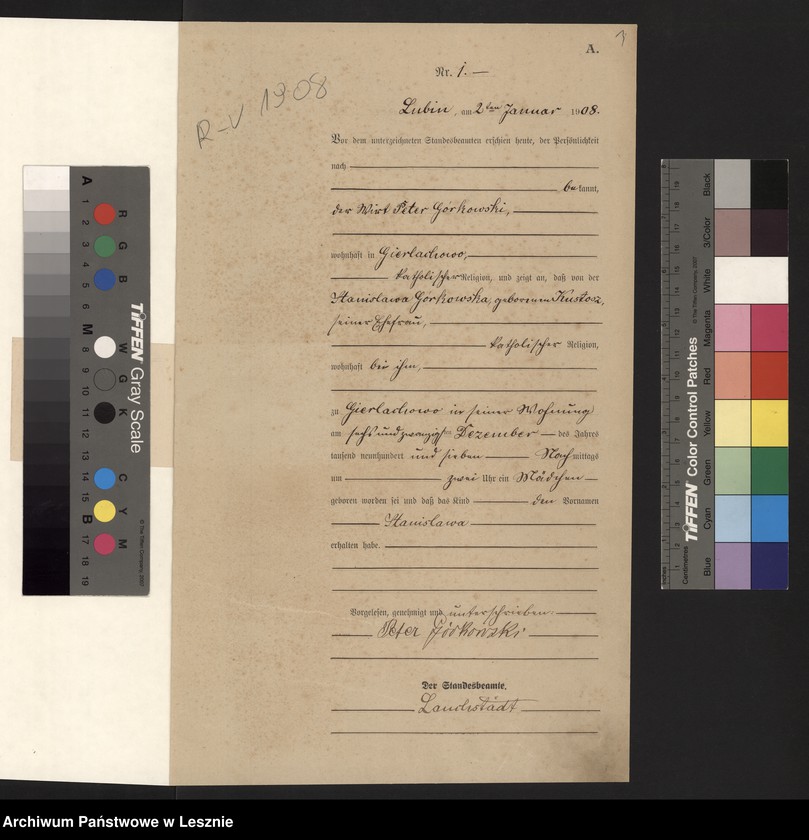 A.
1
Nr. 1.
R-V 1908
Lubin, am 2ten Januar 1908.
Vor dem unterzeichneten Standesbeamten erschien heute, der Persönlichkeit
nach
bekannt,
der Wirt Peter Górkowski,
wohnhaft in Gierlachowo,
katholischer Religion, und zeigt an, daß von der
Stanislawa Górkowska, geborenen Kustosz,
seiner Ehefrau,
katholischer Religion,
wohnhaft bei ihm,
zu Gierlachowo in seiner Wohnung
am sechsundzwanzigsten Dezember des Jahres
tausend neunhundert und sieben Nachmittags
um zwei Uhr ein Mädchen
geboren worden sei und daß das Kind den Vornamen
Stanislawa
erhalten habe.
Vorgelesen, genehmigt und unterschrieben.
Peter Górkowski
Der Standesbeamte.
TIFFEN Gray Scale
© The Tiffen Company, 2007
A 1 2 3 4 5 6 M 8 9 10 11 12 13 14 15 B 17 18 19
R G B W G K C Y M
TIFFEN Color Control Patches
© The Tiffen Company, 2007
Inches
Centimetres
Blue Cyan Green Yellow Red Magenta White 3/Color Black
Archiwum Państwowe w Lesznie